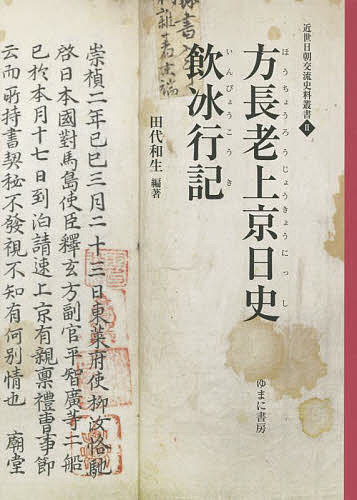 近世日朝交流史料叢書 Ⅱ
ほうちょうろうじょうきょうにっし
方長老上京日史
いんぴょうこうき
飲冰行記
田代和生 編著
ゆまに書房
崇禎二年己巳三月二十三日東萊府使柳汝恪馳
啓日本國對馬島使臣釋玄方副官平智廣等二船
已於本月十七日到泊請速上京有親稟禮曹事節
云而所持書契秘不發視不知有何別情也 廟堂